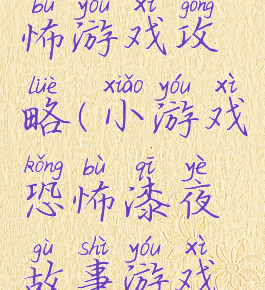 bù yóu xì gōng
怖游戏攻
lüè xiǎo yóu xì
略(小游戏
kǒng bù qī yè
恐怖漆夜
gù shì yóu xì
故事游戏